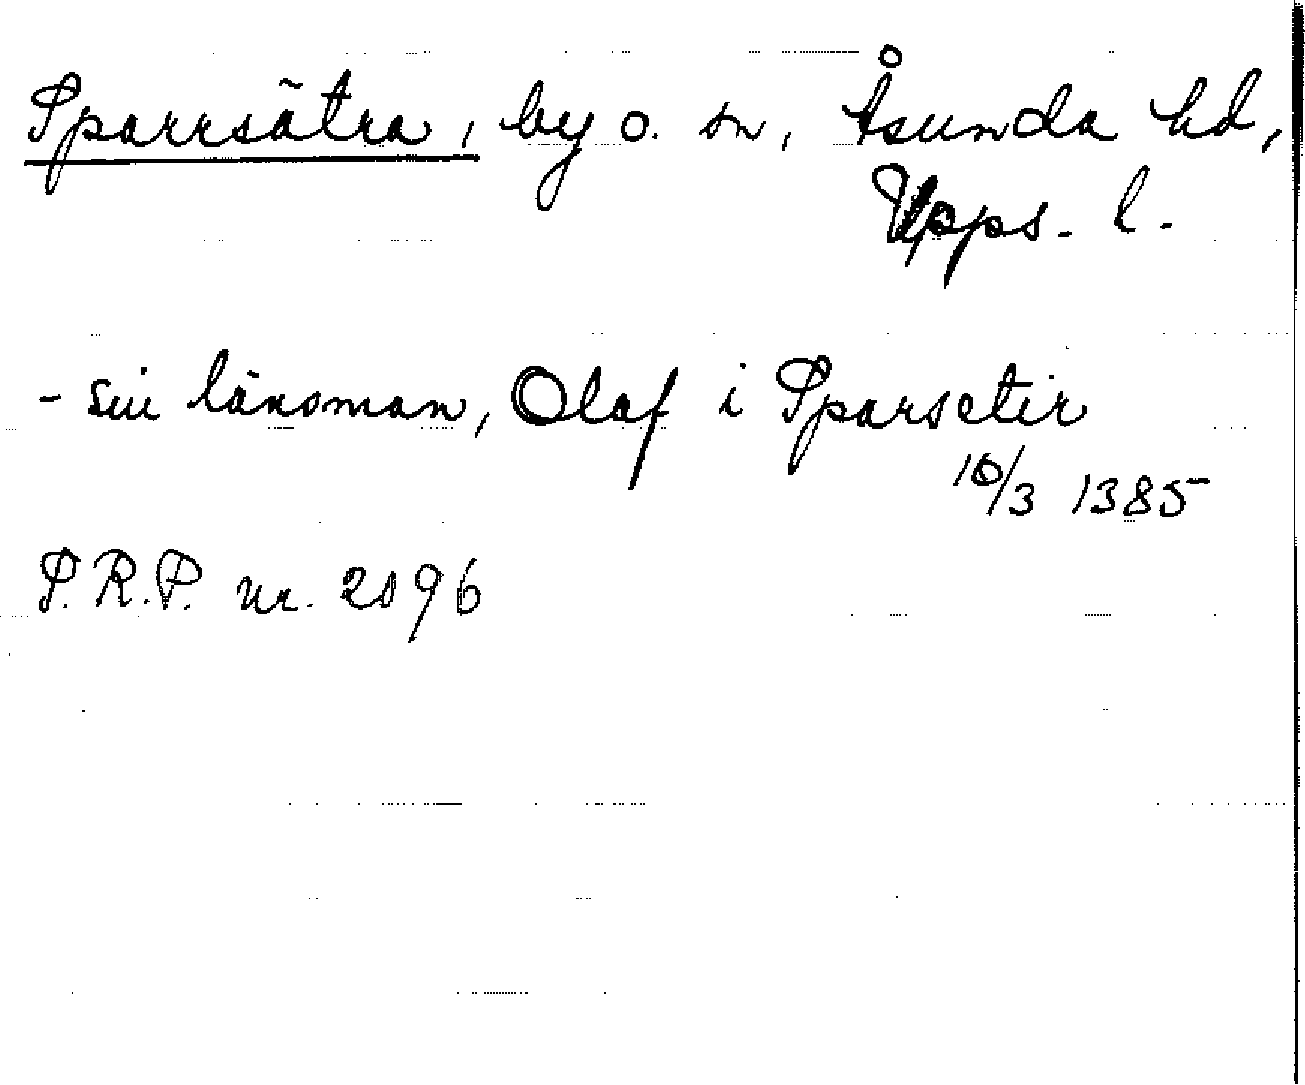 Sparrsätra, by o. sn, Åsunda hd,
Upps. l.
- sin länsman, Olaf i Sparsetir
10/3 1385
S.R.P. nr. 2096